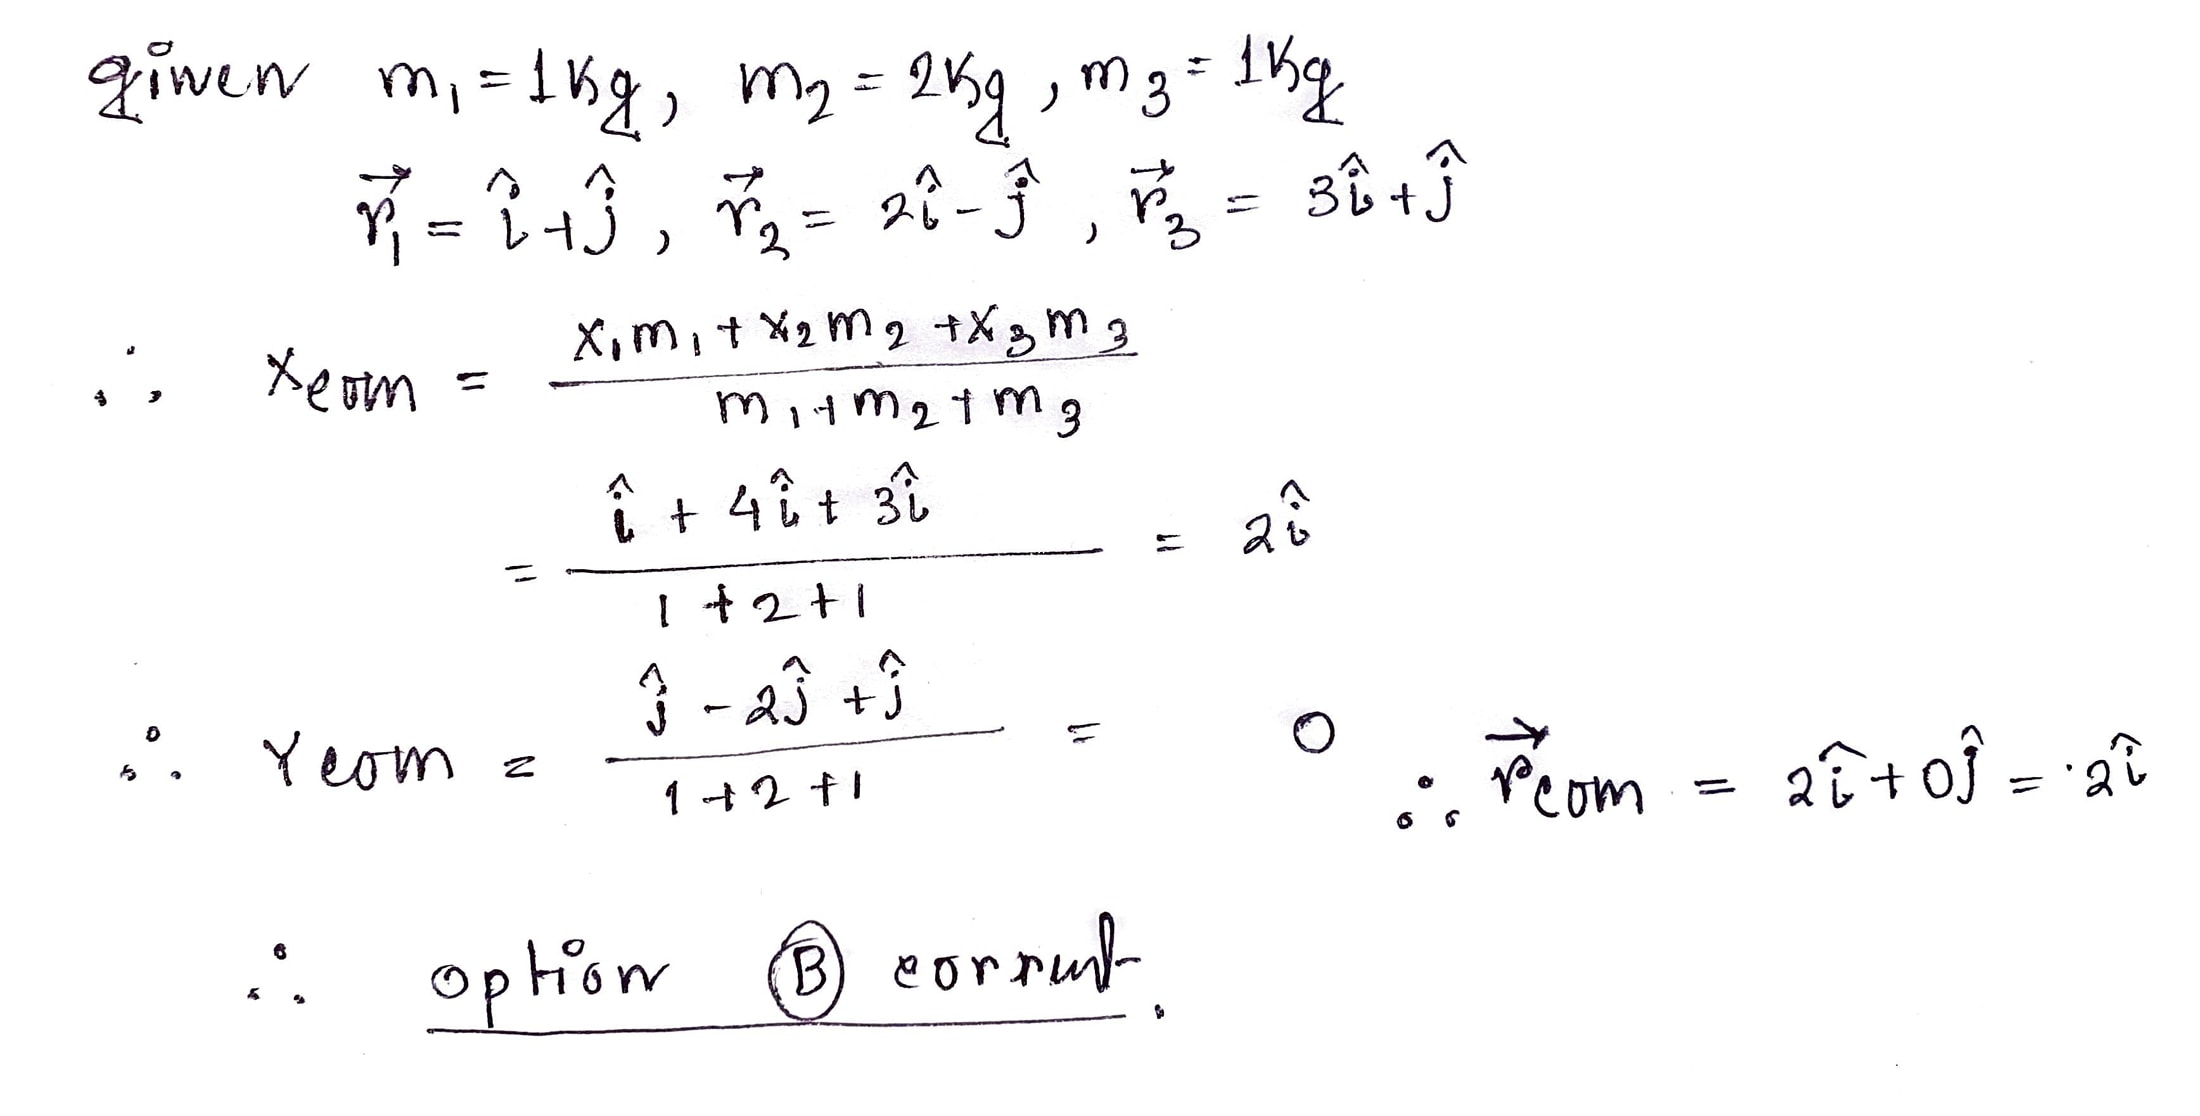 given m₁ = 1Kg, m₂ = 2Kg, m₃ = 1Kg
r⃗₁ = î + ĵ, r⃗₂ = 2î - ĵ, r⃗₃ = 3î + ĵ
∴ Xcom = (x₁m₁ + x₂m₂ + x₃m₃) / (m₁ + m₂ + m₃)
= (î + 4î + 3î) / (1 + 2 + 1) = 2î
∴ Ycom = (ĵ - 2ĵ + ĵ) / (1 + 2 + 1) = 0 ∴ r⃗com = 2î + 0ĵ = 2î
∴ option Ⓑ correct.